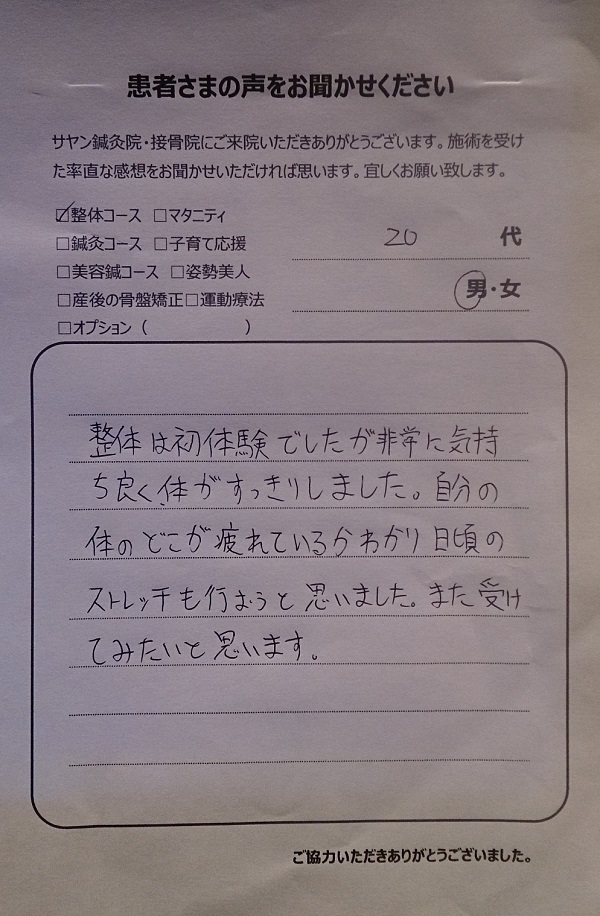 患者さまの声をお聞かせください
サヤン鍼灸院・接骨院にご来院いただきありがとうございます。施術を受け
た率直な感想をお聞かせいただければ思います。宜しくお願い致します。
☑整体コース □マタニティ
□鍼灸コース □子育て応援
□美容鍼コース □姿勢美人
□産後の骨盤矯正□運動療法
□オプション（ ）
20 代
男・女
整体は初体験でしたが非常に気持
ち良く体がすっきりしました。自分の
体のどこが疲れているかわかり日頃の
ストレッチも行おうと思いました。また受け
てみたいと思います。
ご協力いただきありがとうございました。